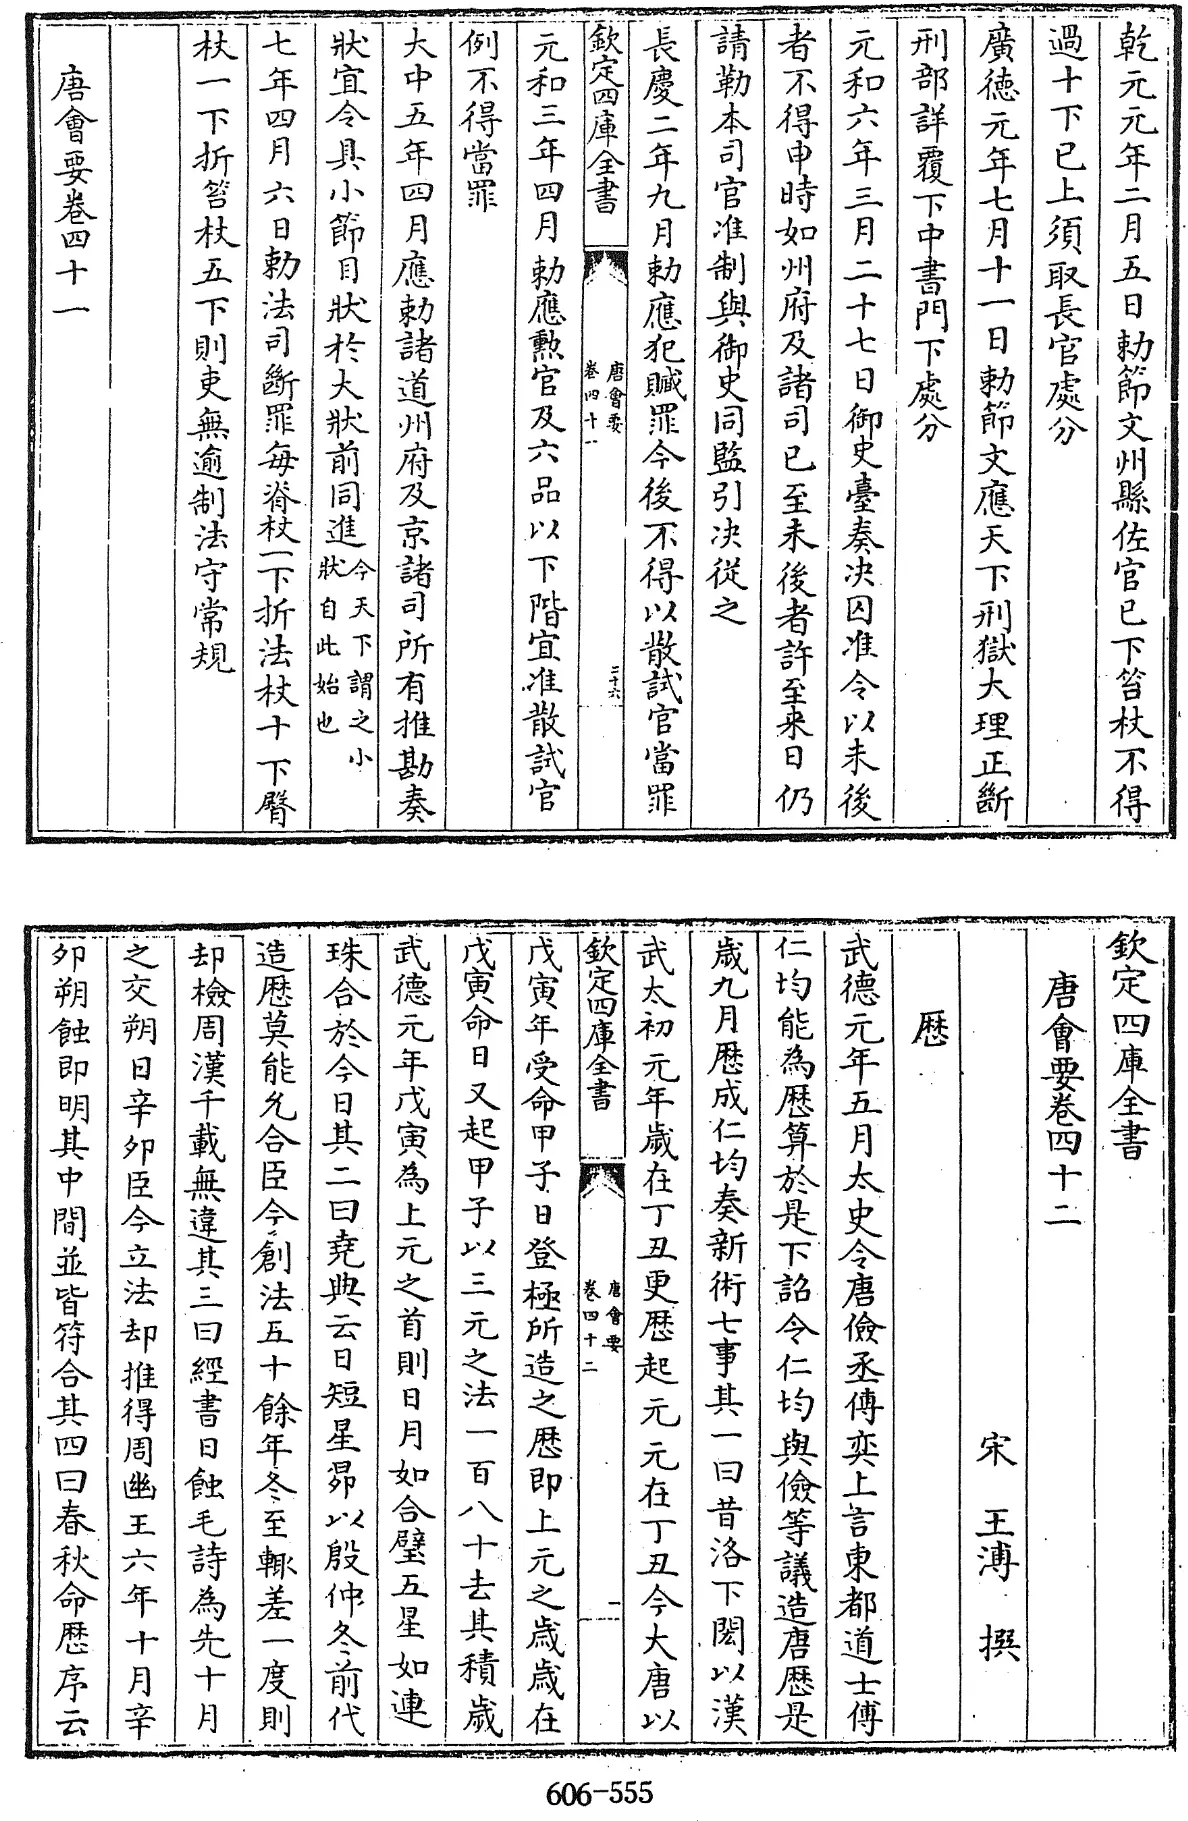 乾元元年二月五日勅節文州縣佐官已下笞杖不得
過十下已上須取長官處分
廣德元年七月十一日勅節文應天下刑獄大理正斷
刑部詳覆下中書門下處分
元和六年三月二十七日御史臺奏決囚准令以未後
者不得申時如州府及諸司已至未後者許至來日仍
請勒本司官准制與御史同監引決從之
長慶二年九月勅應犯贓罪今後不得以散試官當罪
欽定四庫全書
唐會要
卷四十一
三十六
元和三年四月勅應勲官及六品以下階宜准散試官
例不得當罪
大中五年四月應勅諸道州府及京諸司所有推勘奏
狀宜令具小節目狀於大狀前同進今天下謂之小
狀自此始也
七年四月六日勅法司斷罪每脊杖一下折法杖十下臀
杖一下折笞杖五下則吏無逾制法守常規
唐會要卷四十一
欽定四庫全書
唐會要卷四十二
宋 王溥 撰
厯
武德元年五月太史令唐儉丞傅奕上言東都道士傅
仁均能為厯算於是下詔令仁均與儉等議造唐厯是
歲九月厯成仁均奏新術七事其一曰昔洛下閎以漢
武太初元年歲在丁丑更厯起元元在丁丑今大唐以
欽定四庫全書
唐會要
卷四十二
一
戊寅年受命甲子日登極所造之厯即上元之歲歲在
戊寅命日又起甲子以三元之法一百八十去其積歲
武德元年戊寅為上元之首則日月如合璧五星如連
珠合於今日其二曰堯典云日短星昴以殷仲冬前代
造厯莫能允合臣今創法五十餘年冬至輙差一度則
却檢周漢千載無違其三曰經書日蝕毛詩為先十月
之交朔日辛卯臣今立法却推得周幽王六年十月辛
卯朔蝕即明其中間並皆符合其四曰春秋命厯序云
606-555